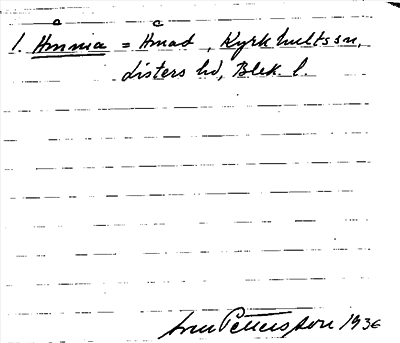 1. Åmmia = Åmad, Kyrkhultssn,
Listers hd, Blek. l.
Pettersson 1936